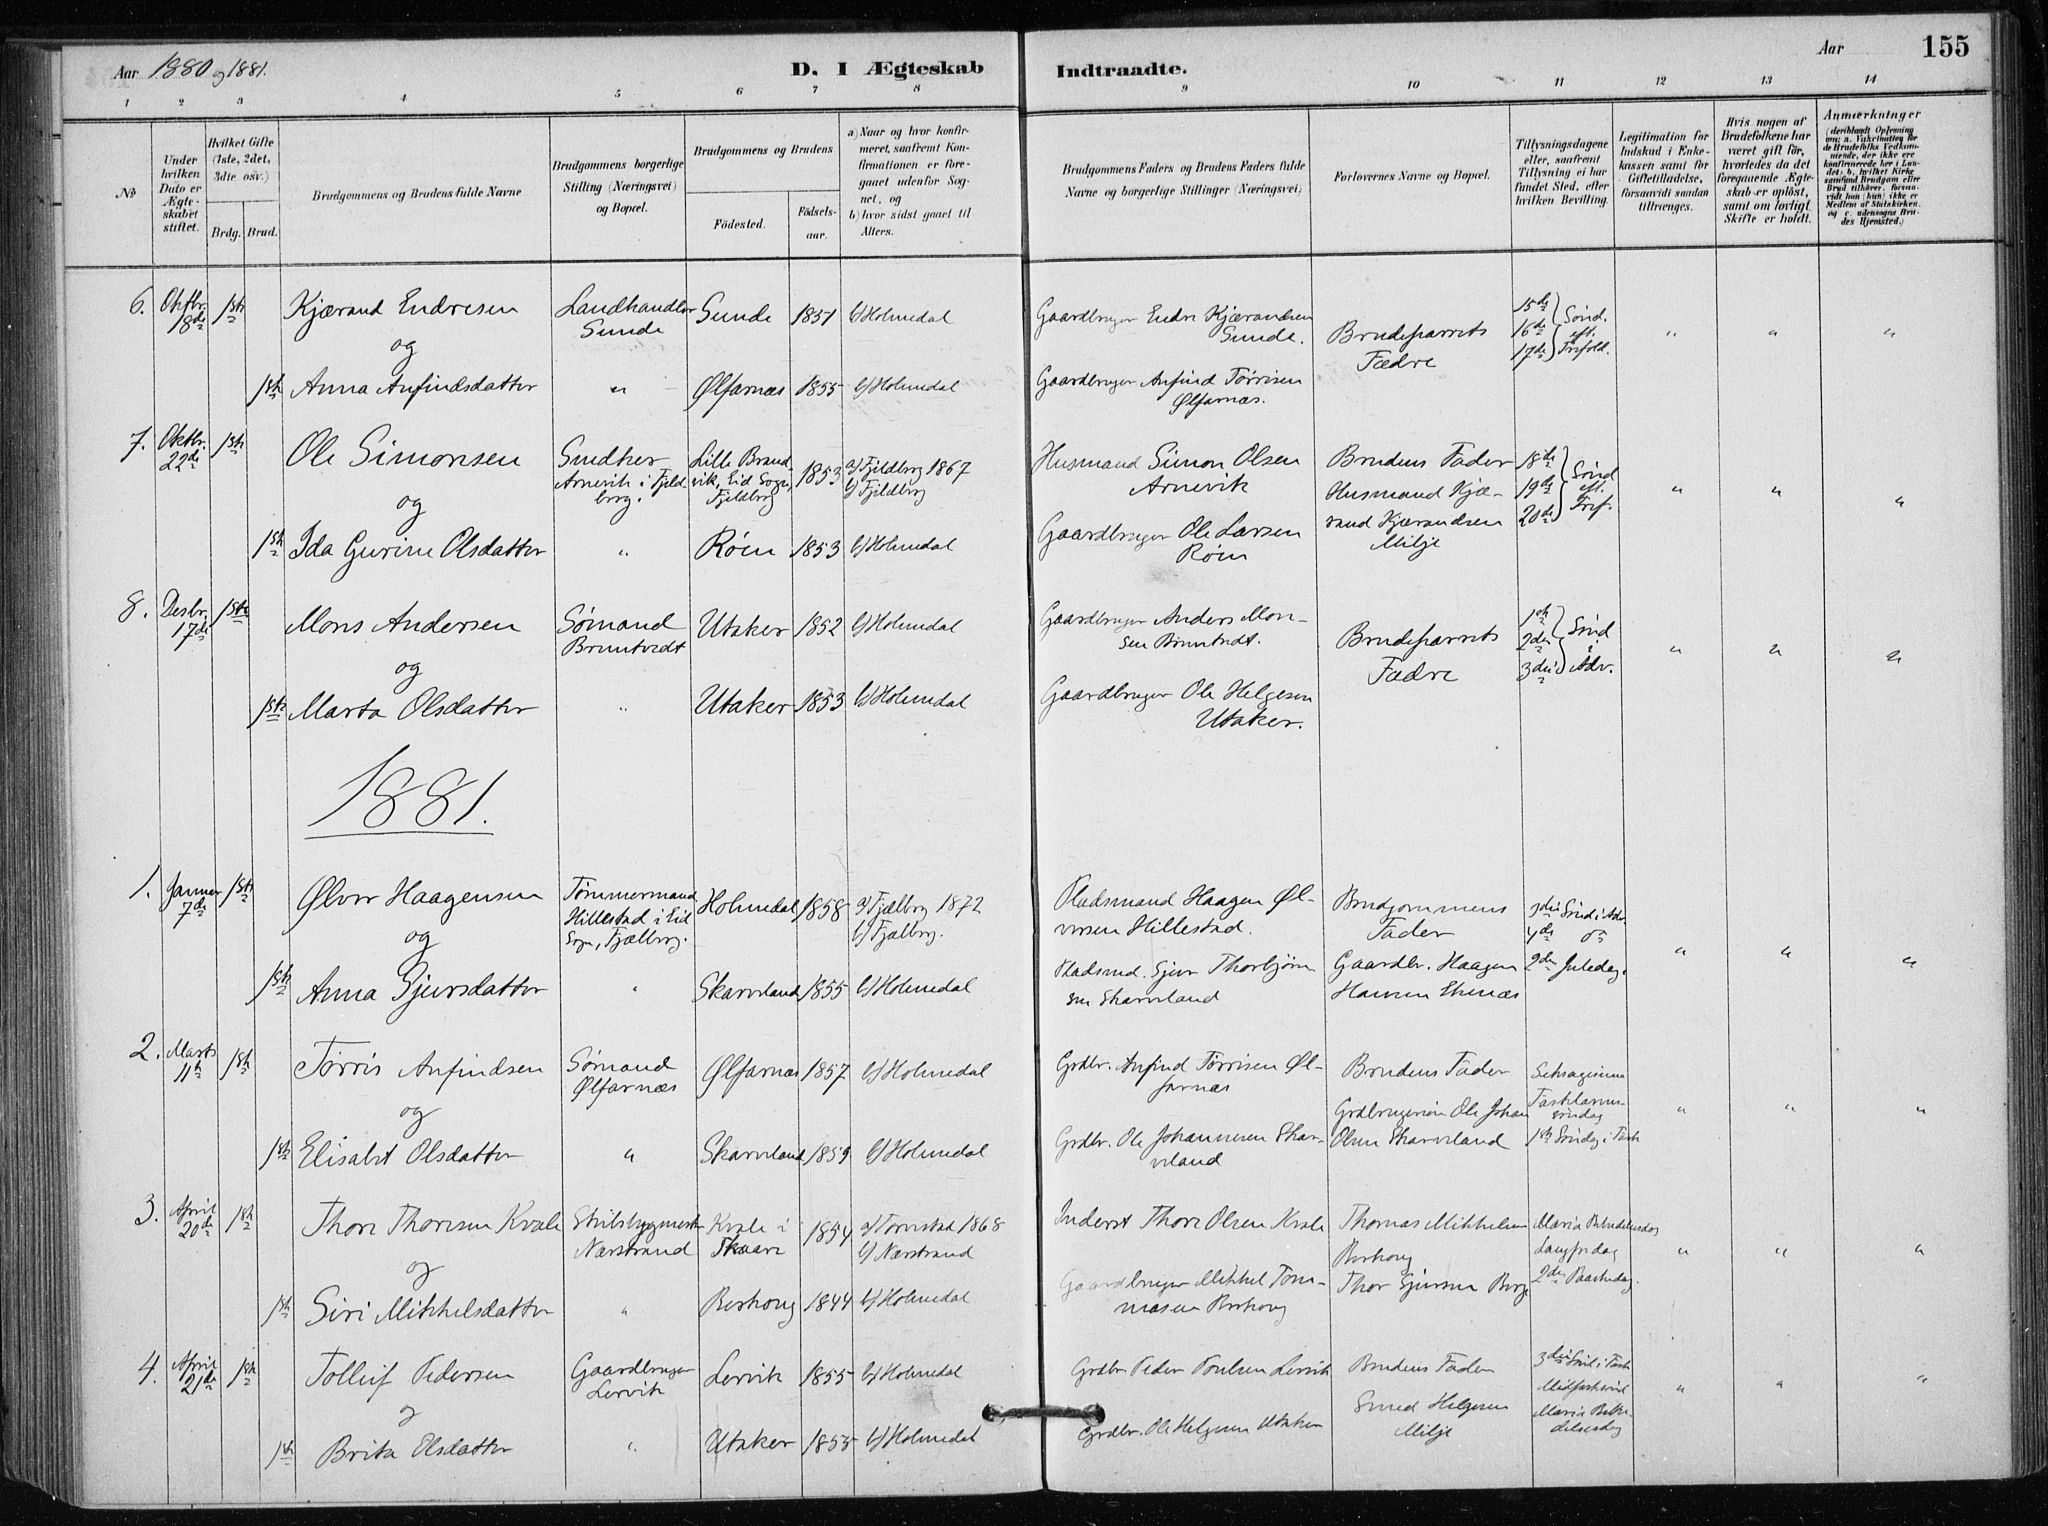 Aar 1880 og 1881.
D. I Ægteskab
Indtraadte.
Aar
155
1 2 3 4 5 6 7 8 9 10 11 12 13 14
No
Under hvilken Dato er Ægteskabet stiftet.
Hvilket Gifte (1ste, 2det, 3die osv.)
Brdg. Brud.
Brudgommens og Brudens fulde Navne
Brudgommens borgerlige Stilling (Næringsvei) og Bopæl.
Brudgommens og Brudens
Fødested.
Fødselsaar.
a) Naar og hvor konfirmeret, saafremt Konfirmationen er foregaaet udenfor Sognet, og
b) hvor sidst gaaet til Alters.
Brudgommens Faders og Brudens Faders fulde Navne og borgerlige Stillinger (Næringsvei)
Forlovernes Navne og Bopæl.
Tillysningsdagene eller, saafremt Tillysning ei har fundet Sted, efter hvilken Bevilling.
Legitimation for Indskud i Enkekassen samt for Giftetilladelse, forsaavidt saadan tiltrænges.
Hvis nogen af Brudefolkene har været gift før, hvorledes da det foregaaende Ægteskab er opløst, samt om lovligt Skifte er holdt.
Anmærkninger
(deriblandt Oplysning om: a. Vaksination for de Brudefolks Vedkommende, der ikke ere konfirmerede her i Landet; b. hvilket Kirkesamfund Brudgom eller Brud tilhører, forsaavidt han (hun) ikke er Medlem af Statskirken, og c. udensogns Brudes Hjemsted.)
6. Oktbr. 18de 1ste Kjærand Endresen Landhandler Sunde Sunde 1851 b) Holmedal Gaardbruger Endre Kjærandsen Sunde. Brudeparrets Fædre 15de 16de 17de Sønd. eft. Trefold. " " "
og
1ste Anna Anfindsdatter " Ølfarnæs 1855 b) Holmedal Gaardbruger Anfind Tørrisen Ølfarnæs.
7. Oktbr. 22de 1ste Ole Simonsen Snedker Arnevik i Fjeldberg. Lille Brandvik, Eid Sogn, Fjeldberg 1853 a) Fjeldberg 1867 b) Fjeldberg Husmand Simon Olsen Arnevik Brudens Fader Husmand Kjærand Kjærandsen Milje 18de 19de 20de Sønd eft. Tref. " " "
og
1ste Ida Gurine Olsdatter " Røen 1853 b) Holmedal Gaardbruger Ole Larsen Røen
8. Desbr. 17de 1ste Mons Andersen Sømand Bruntvedt Utaker 1852 b) Holmedal Gaardbruger Anders Monsen Bruntvedt. Brudeparrets Fædre 1ste 2den 3die Sønd i Adv. " " "
og
1ste Marta Olsdatter " Utaker 1853 b) Holmedal Gaardbruger Ole Helgesen Utaker.
1881.
1. Januar 7de 1ste Ølver Haagensen Tømmermand Hillestad i Eid Sogn, Fjælberg. Holmedal 1858 a) Fjælberg 1872 b) Fjælberg. Pladsmand Haagen Ølversen Hillestad. Brudgommens Fader 3die Sønd i Adv 4de do
og
1ste Anna Sjursdatter " Skarveland 1855 b) Holmedal Pladsmd. Sjur Thorbjørnsen Skarveland Gaardbr. Haagen Hansen Ekenæs 2den Juledag. " " "
2. Marts 11te 1ste Tørris Anfindsen Sømand Ølfarnæs Ølfarnæs 1857 b) Holmedal Grdbr. Anfind Tørrisen Ølfarnæs Brudens Fader Seksagesima Fastelavnssøndag
og
1ste Elisabet Olsdatter " Skarveland 1859 b) Holmedal Grdbr. Ole Johannesen Skarveland Olsen Skarveland 1ste Søndag i Fast " " "
3. April 20de 1ste Thore Thoresen Kvale Skibsbygmester Nærstrand Kvale i Skaare 1854 a) Torvestad 1868 b) Nærstrand Inderst Thore Olsen Kvale Thomas Mikkelsen Berhoug Maria Bebudelsesdag Langfredag " " "
og
1ste Siri Mikkelsdatter " Berhoug 1844 b) Holmedal Gaardbruger Mikkel Tommasen Berhoug Thor Sjursen Berge 2den Paaskedag.
4. April 21de 1ste Tolleif Pedersen Gaardbruger Lervik Lervik 1855 b) Holmedal Grdbr Peder Poulsen Lervik Brudens Fader 3die Sønd i Fast Midfastesønd " " "
og
1ste Brita Olsdatter " Utaker 1855 b) Holmedal Grdbr. Ole Helgesen Utaker Helgesen Milje Maria Bebudelsesdag